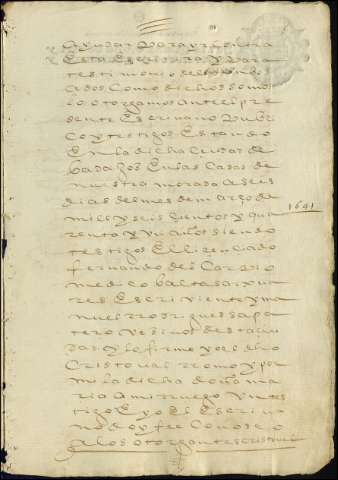 ayudar para yr contra
Esta Escritura y Para
testimonio de
ados Como dicho es somos
lo otorgamos ante el pre
sente Escrivano Publi
Co y testigos Estando
En la dicha Ciudad de
badajoz En las Casas de
nuestra morada A seis
dias del mes de março de
mill y seis cientos y qua
renta y un años siendo
1641
testigos El licenciado
fernando del
medico baltasar xua
res Escriviente y ma
nuel rrodrigues sapa
tero Vesinos desta ciu
dad y lo firmo yo el dho
Cristoval rromo y por
mi la dicha doña ma
ria A mi rruego Un tes
tigo E yo El Escriva
no doy fee Conosco
a los otorgantes cristoval